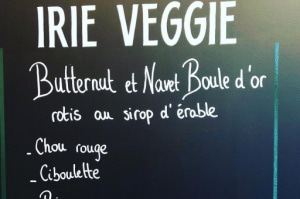 IRIE VEGGIE
Butternut et Navet Boule d'or
rotis au sirop d'érable
- Chou rouge
- Ciboulette